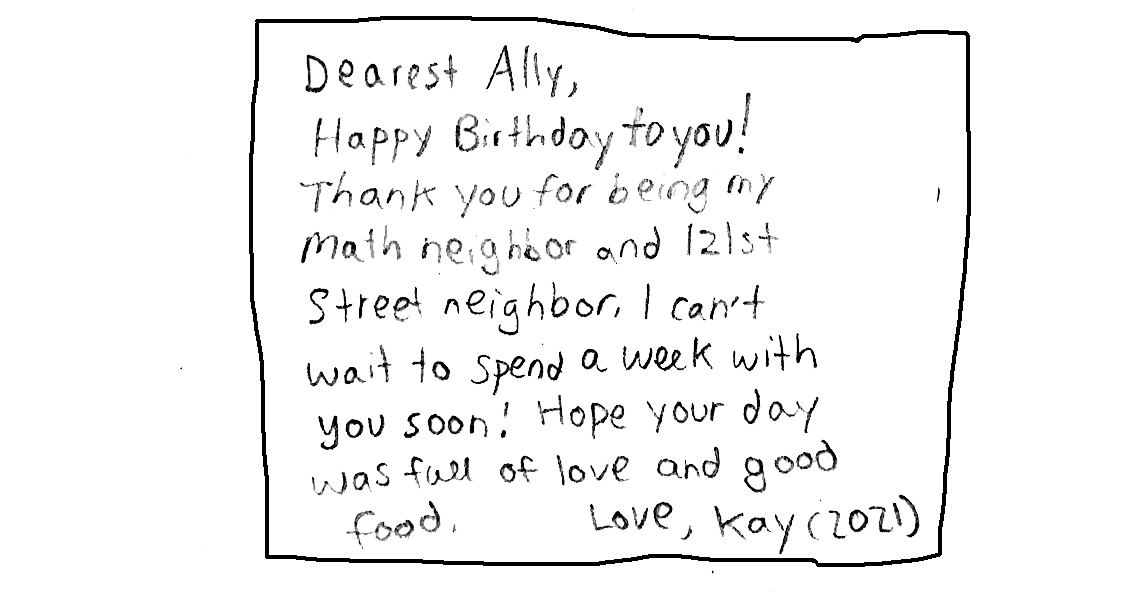 Dearest Ally,
Happy Birthday to you!
Thank you for being my
math neighbor and 121st
Street neighbor. I can't
wait to spend a week with
you soon! Hope your day
was full of love and good
food. Love, Kay (2021)